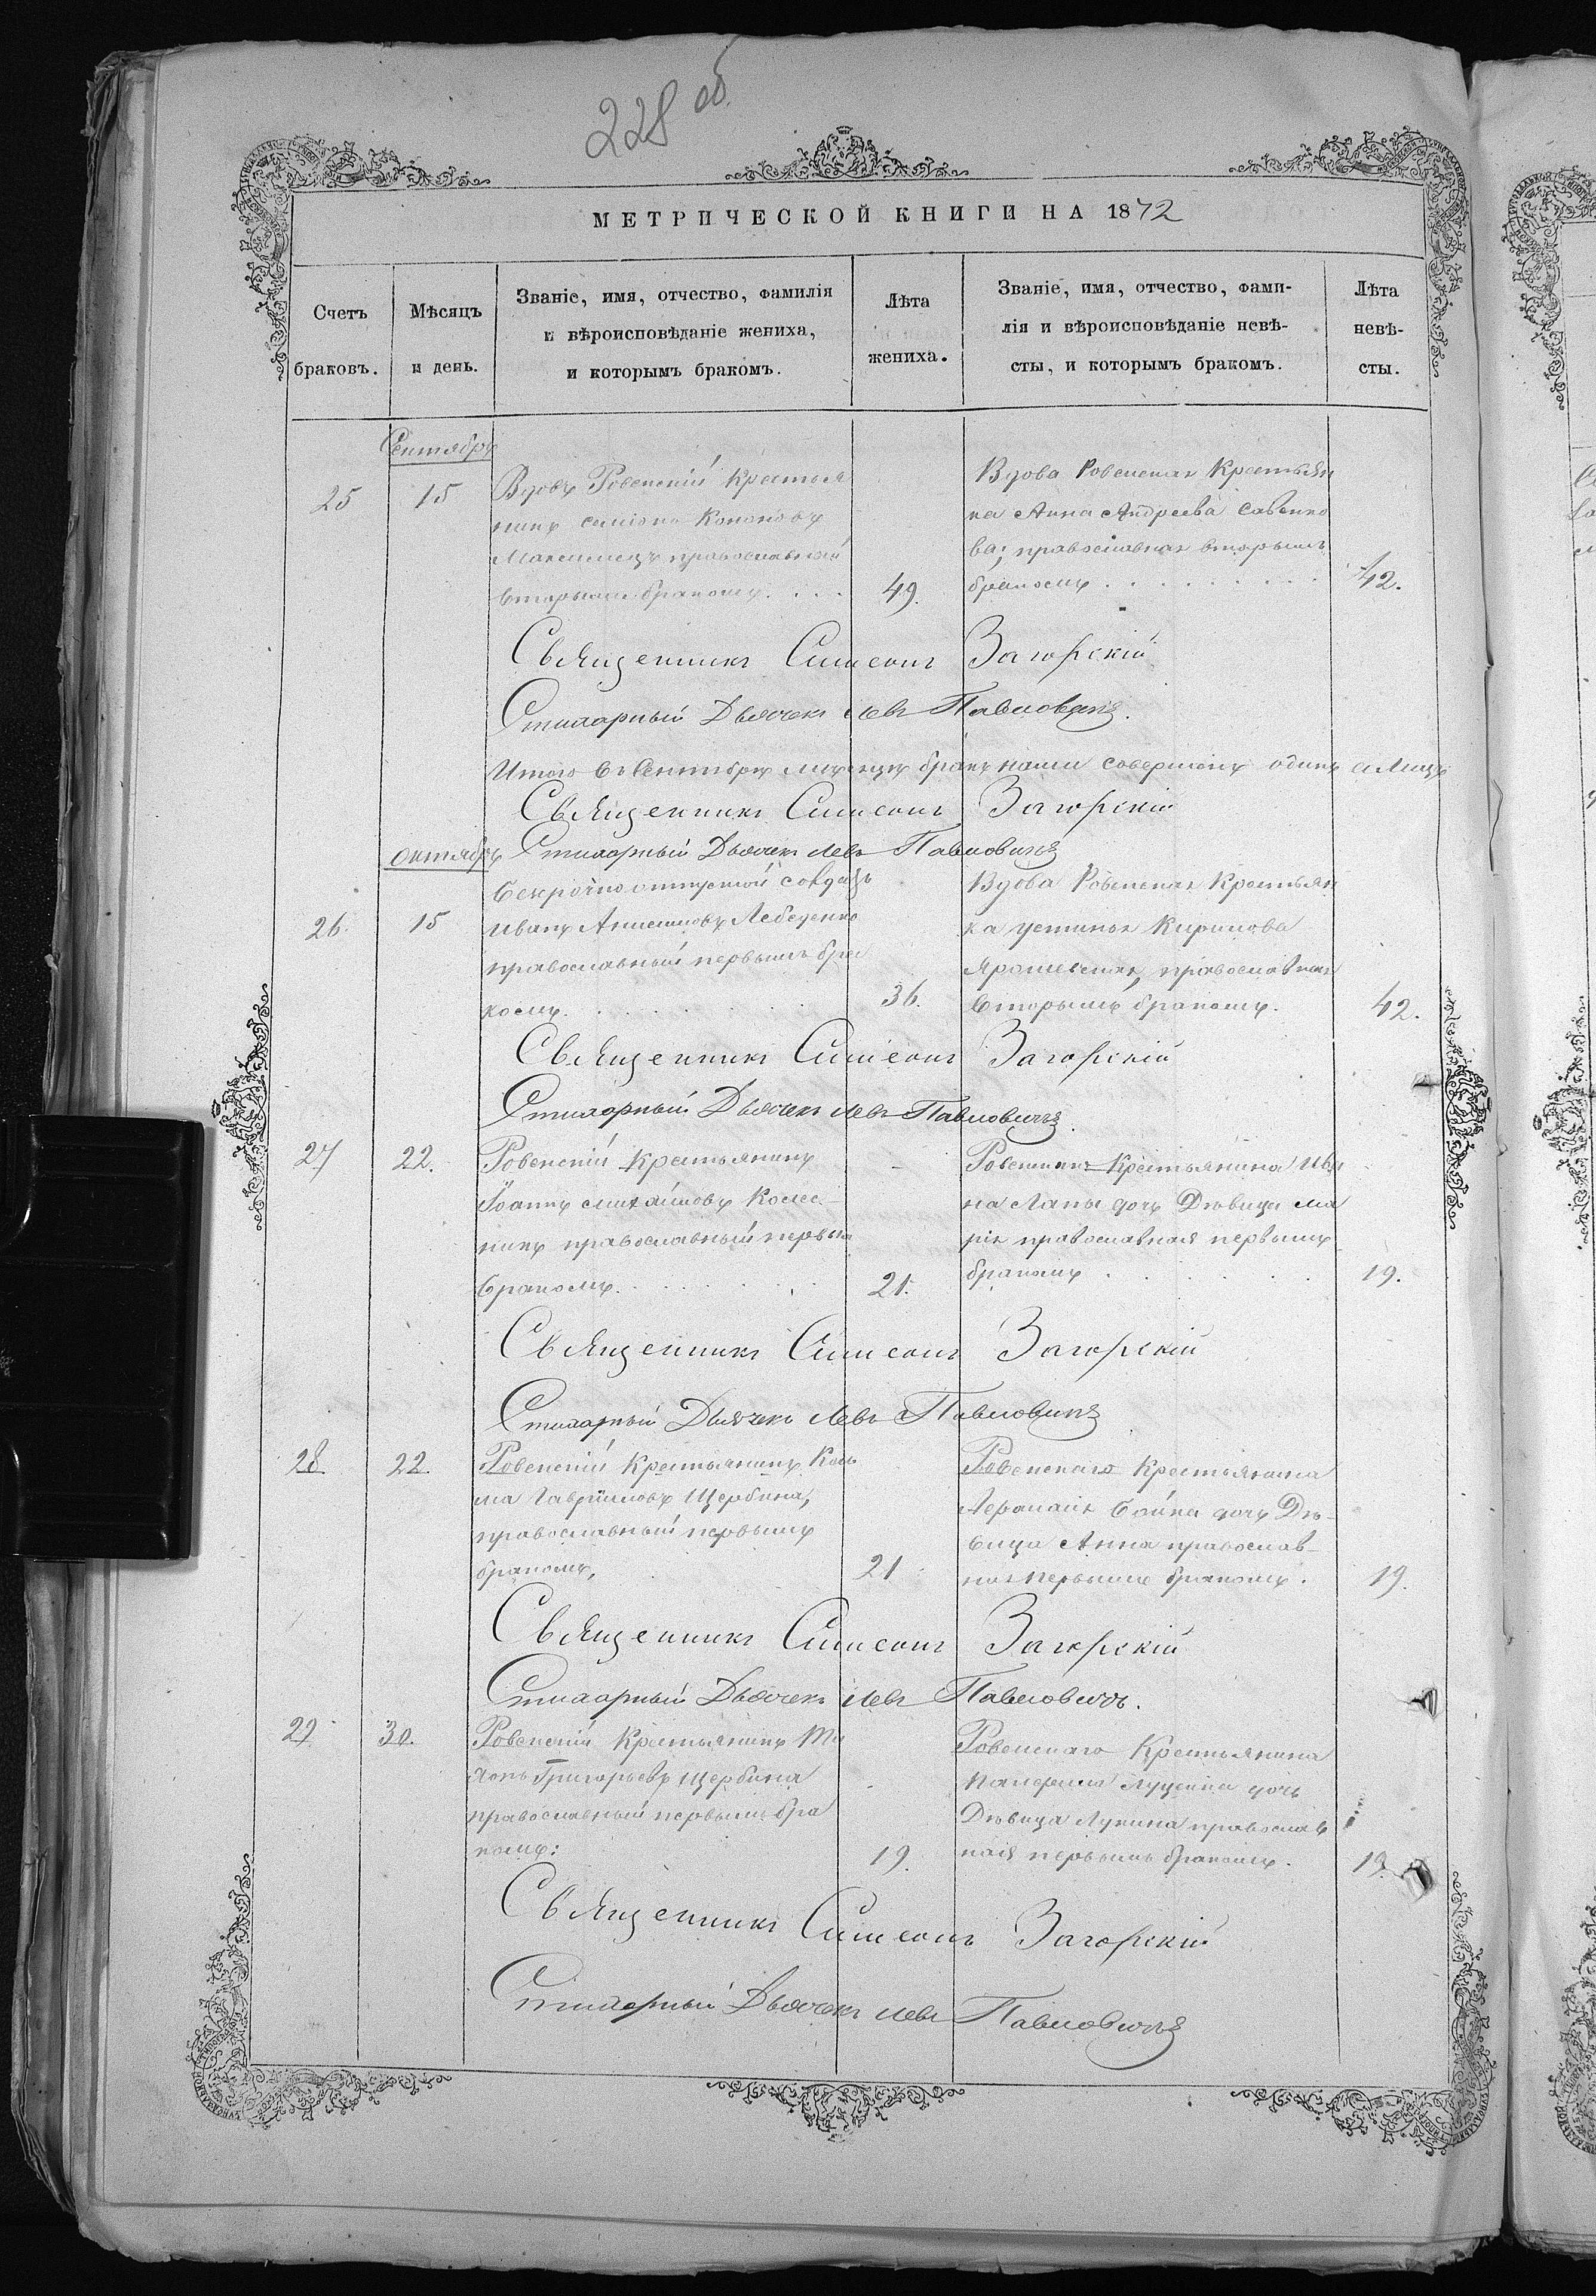 228 об.
МЕТРИЧЕСКОЙ КНИГИ НА 1872
Счетъ браковъ.
Мѣсяцъ и день.
Званіе, имя, отчество, фамилія
и вѣроисповѣданіе жениха,
и которымъ бракомъ.
Лѣта жениха.
Званіе, имя, отчество, фами-
лія и вѣроисповѣданіе невѣ-
сты, и которымъ бракомъ.
Лѣта невѣ-
сты.
Сентябрь
25
15
Вдовъ Ровенскій Крестья
нинъ Симіонъ Кононовъ
православный
вторымъ бракомъ. . . .
49.
Вдова Ровенская Крестьян
ка Анна Андреева Савенко
ва; православная вторымъ
бракомъ . . . . . . . .
42.
Священникъ Симеонъ Загорскій
Стихарный Дьячекъ Левъ Павловичъ.
Итого въ Сентябрѣ мѣсяцѣ бракъ нами совершонъ одинъ
Священникъ Симеонъ Загорскій
Стихарный Дьячекъ Левъ Павловичъ
Октябрь
26.
15
безсрочно отпускной солдатъ
Иванъ Анисимовъ Лебеденко
православный первымъ бра
комъ. . . . . . .
36.
Вдова Ровенская Крестьян
ка Устинья Кирилова
Ярошевская, православная
вторымъ бракомъ.
42.
Священникъ Симеонъ Загорскій
Стихарный Дьячекъ Левъ Павловичъ.
27
22.
Ровенскій Крестьянинъ
Іоаннъ Михайловъ Колес-
никъ православный первымъ
бракомъ. . . . . . .
21.
Крестьянина Ива
на Лапы дочь Дѣвица Ма
рія православная первымъ
бракомъ . . . . . .
19.
Священникъ Симеонъ Загорскій
Стихарный Дьячекъ Левъ Павловичъ
28.
22.
Ровенскій Крестьянинъ Козь
ма Гавриловъ Щербина,
православный первымъ
бракомъ,
21
Ровенскаго Крестьянина
Бойка дочь Дѣ-
вица Анна православ-
ная первымъ бракомъ.
19.
Священникъ Симеонъ Загорскій
Стихарный Дьячекъ Левъ Павловичъ.
29
30.
Ровенскій Крестьянинъ Ти
хонъ Григорьевъ Щербина
православный первымъ бра
комъ:
19.
Ровенскаго Крестьянина
Луценка дочь
Дѣвица Лукина православ
ная первымъ бракомъ.
19.
Священникъ Симеонъ Загорскій
Стихарный Дьячекъ Левъ Павловичъ